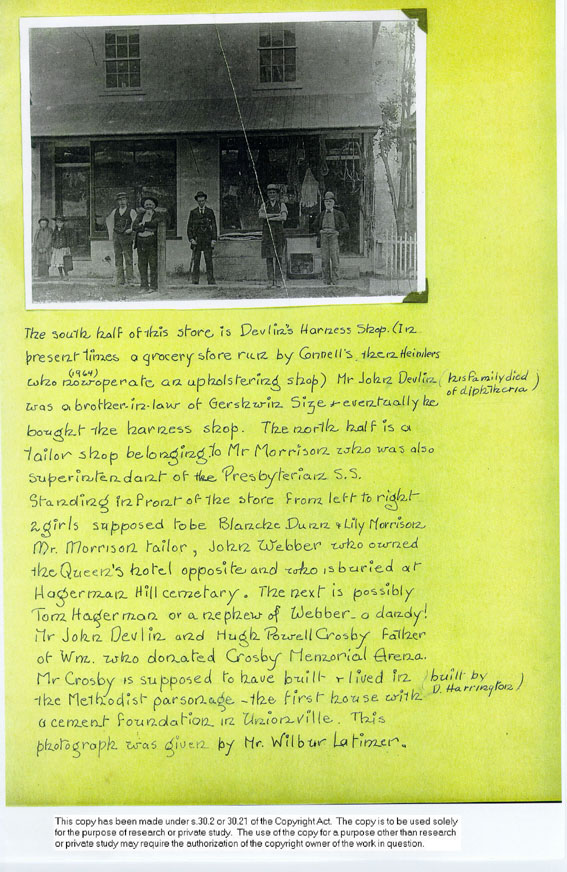 The south half of this store is Devlin's Harness Shop. (In
present times a grocery store run by Connell's, then Heimlers
(1964)
who now operate an upholstering shop) Mr John Devlin (his family died
of diphtheria)
was a brother-in-law of Gershwin Size & eventually he
bought the harness shop. The north half is a
tailor shop belonging to Mr Morrison who was also
superintendant of the Presbyterian S.S.
Standing in front of the store from left to right
2 girls supposed to be Blanche Dunn & Lily Morrison
Mr. Morrison tailor, John Webber who owned
the Queen's hotel opposite and who is buried at
Hagerman Hill cemetary. The next is possibly
Tom Hagerman or a nephew of Webber - a dandy!
Mr John Devlin and Hugh Powell Crosby father
of Wm. who donated Crosby Memorial Arena.
Mr Crosby is supposed to have built & lived in (built by
D. Harrington)
the Methodist parsonage - the first house with
a cement foundation in Unionville. This
photograph was given by Mr. Wilbur Latimer.
This copy has been made under s.30.2 or 30.21 of the Copyright Act. The copy is to be used solely
for the purpose of research or private study. The use of the copy for a purpose other than research
or private study may require the authorization of the copyright owner of the work in question.